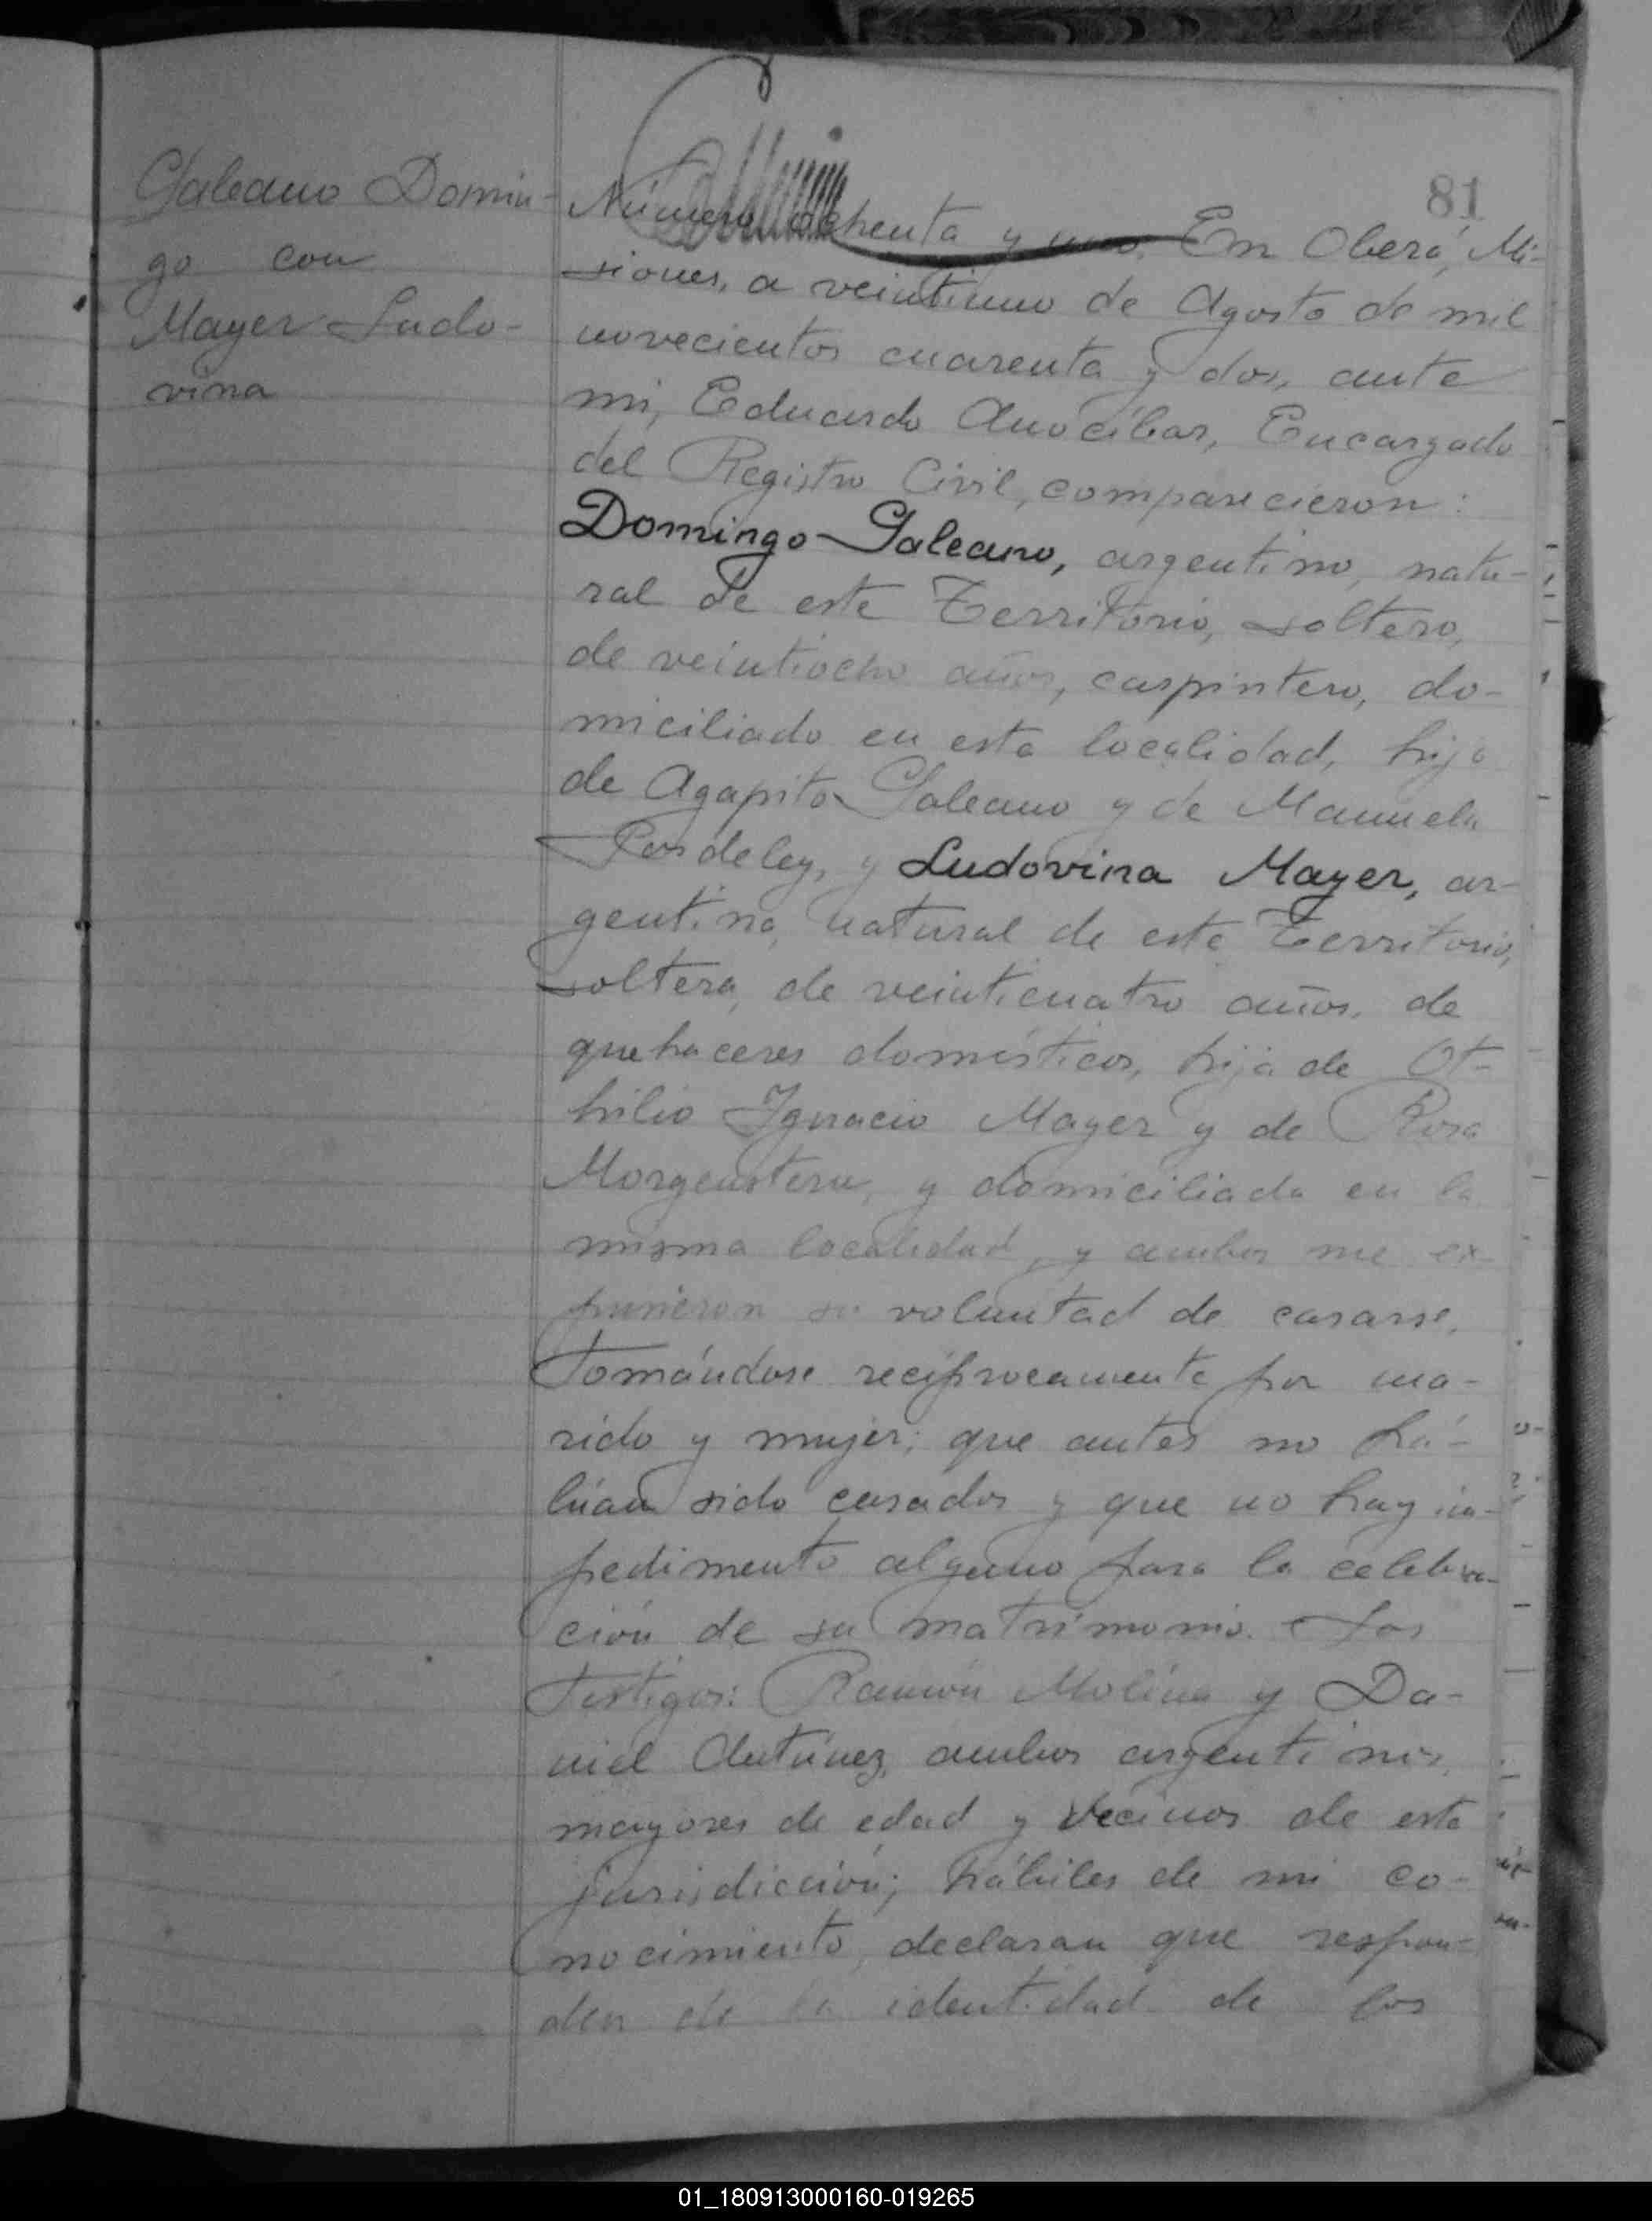 81
Galeano Domin-
go con
Mayer Ludo-
vina
Número ochenta y uno. En Oberá, Mi-
siones, a veintiuno de Agosto de mil
novecientos cuarenta y dos, ante
mi, Eduardo Anocíbar, Encargado
del Registro Civil, comparecieron:
Domingo Galeano, argentino, natu-
ral de este Territorio, soltero,
de veintiocho años, carpintero, do-
miciliado en esta localidad, hijo
de Agapito Galeano y de Manuela
y Ludovina Mayer, ar-
gentina, natural de este Territorio,
soltera, de veinticuatro años, de
quehaceres domésticos, hija de Ot-
hilio Ignacio Mayer y de Rosa
Morgenstern, y domiciliada en la
misma localidad, y ambos me ex-
pusieron su voluntad de casarse,
tomándose recíprocamente por ma-
rido y mujer; que antes no há-
bían sido casados y que no hay im-
pedimento alguno para la celebra-
ción de su matrimonio. Los
testigos: Ramón Molina y Da-
niel Antúnez, ambos argentinos,
mayores de edad y vecinos de esta
jurisdicción; hábiles de mi co-
nocimiento, declaran que respon-
den de la identidad de los
01_180913000160-019265